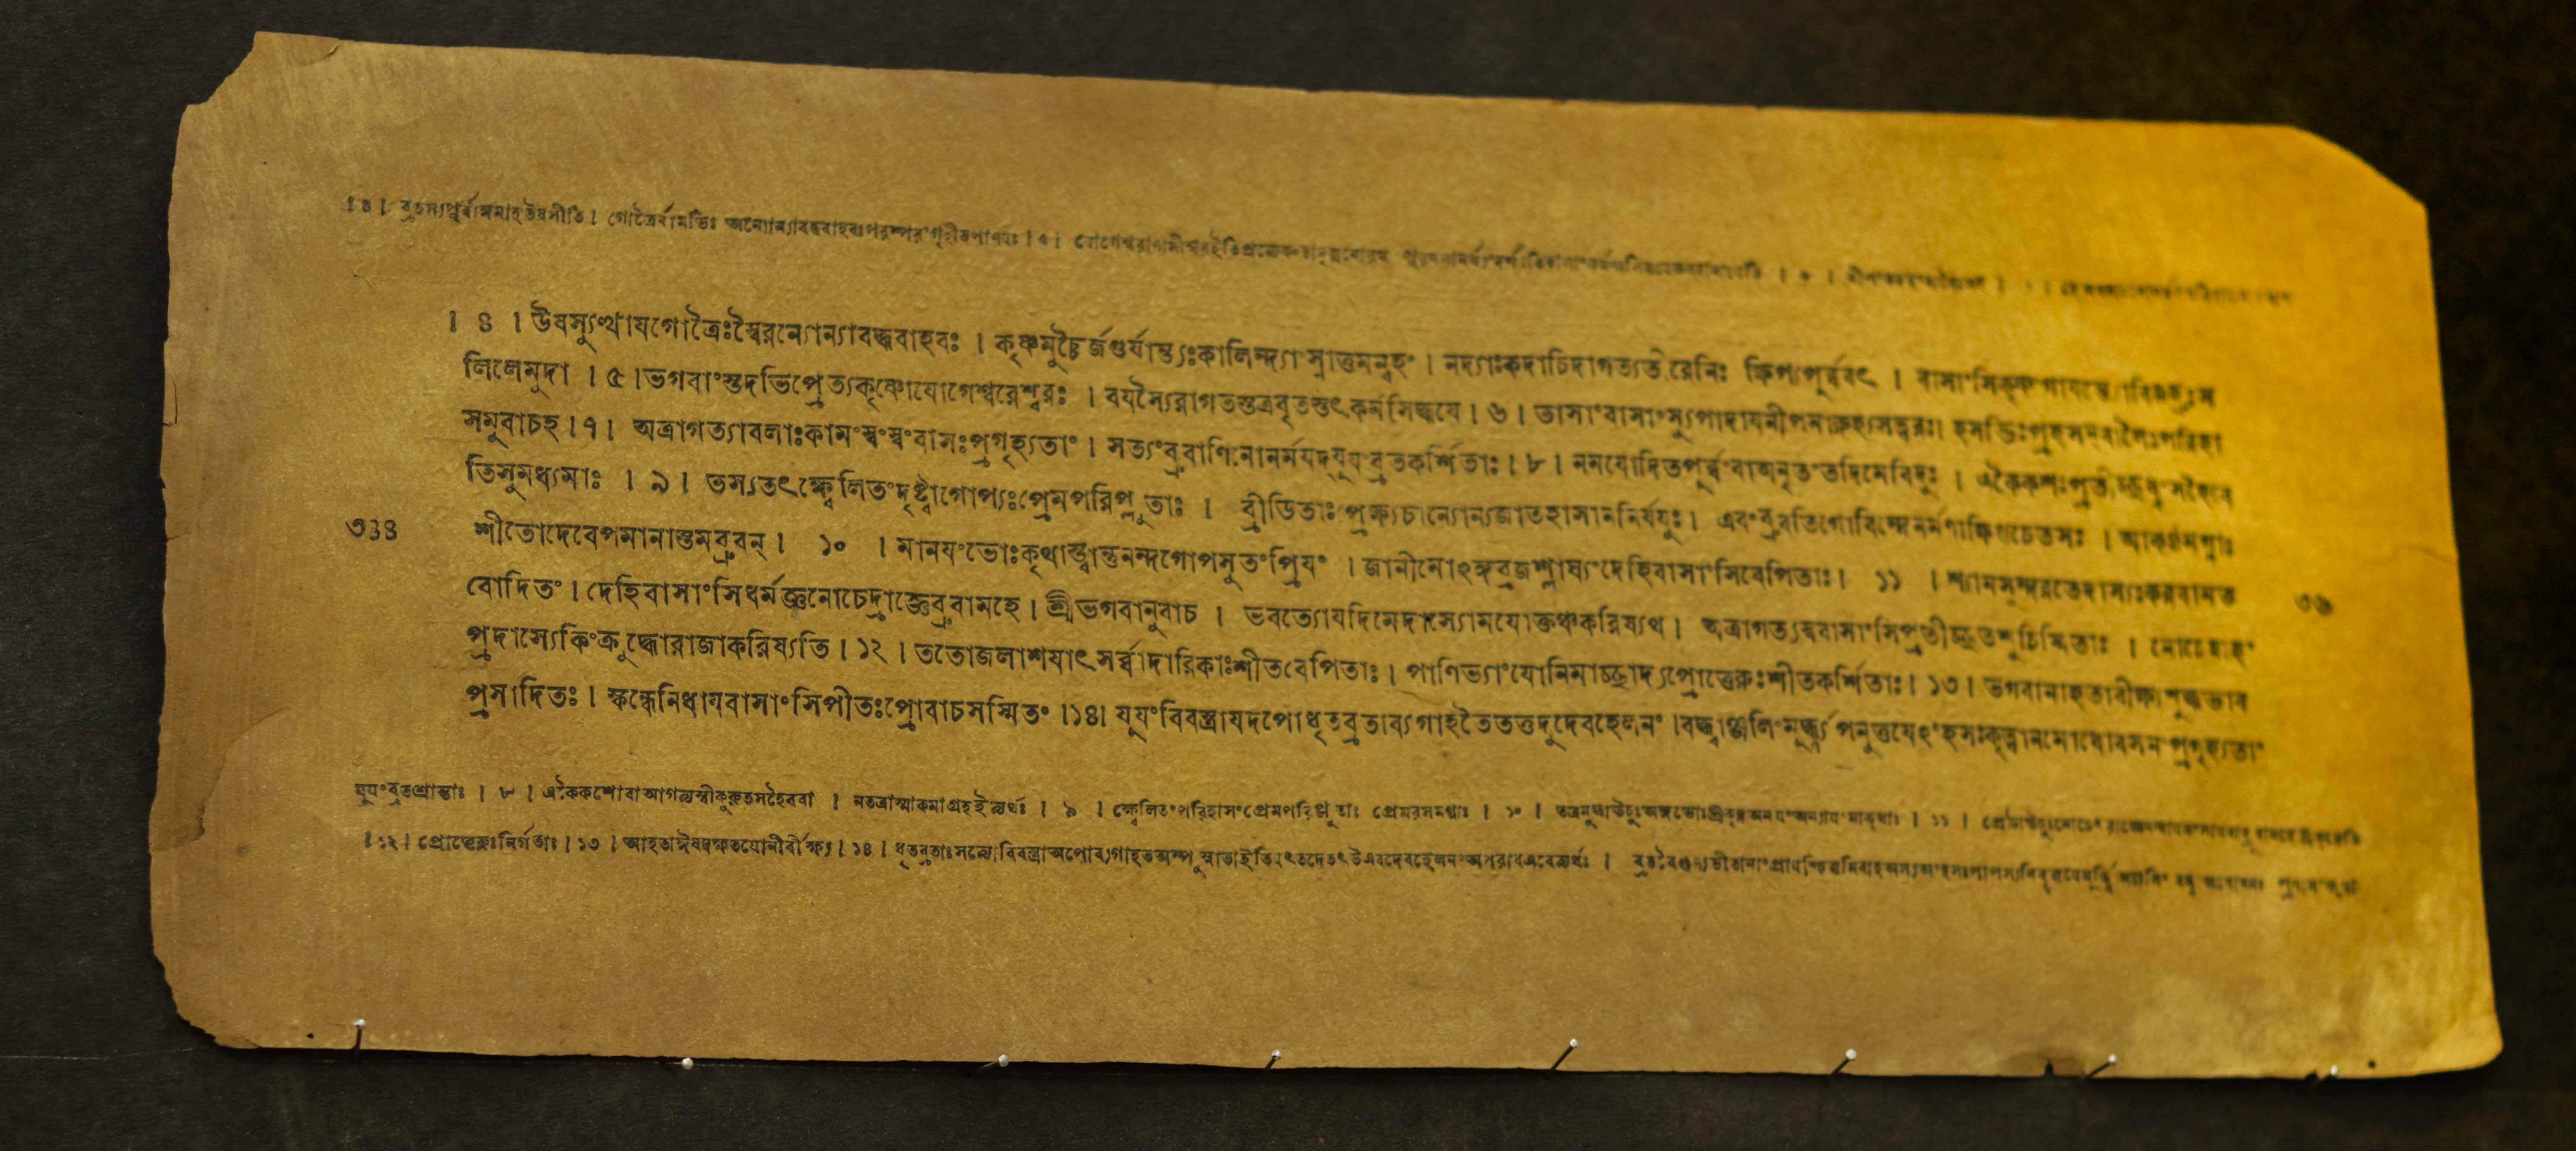 । ৪ । ব্রতস্যপূর্ব্বাঙ্গমাহউষসীতি । গোত্রৈর্নামভিঃ অন্যোন্যাবদ্ধবাহবঃপরস্পরংগৃহীতপাণযঃ । ৫ । যোগেশ্বরাণামীশ্বরইতি
। ৪ । উষস্যুত্থাযগোত্রৈঃস্বৈরন্যোন্যাবদ্ধবাহবঃ । কৃষ্ণমুচ্চৈর্জগুর্যান্ত্যঃকালিন্দ্যাংস্নাতুমন্বহং । নদ্যাঃকদাচিদাগত্যতীরেনিঃ ক্ষিপ্যপূর্ব্ববৎ । বাসাংসিকৃষ্ণংগাযন্ত্যোবিজহ্রুঃস
লিলেমুদা । ৫ ।ভগবাংস্তদভিপ্রেত্যকৃষ্ণোযোগেশ্বরেশ্বরঃ । বযস্যৈরাগতস্তত্রবৃতস্তৎকর্মসিদ্ধযে । ৬ । তাসাংবাসাংস্যুপাদাযনীপমারুহ্যসত্বরঃ। হসদ্ভিঃপ্রহসন্বালৈঃপরিহা
সমুবাচহ । ৭ । অত্রাগত্যাবলাঃকামংস্বংস্বংবাসঃপ্রগৃহ্যতাং । সত্যংব্রবাণিনোনর্মযদ্যূযংব্রতকর্শিতাঃ । ৮ । নমযোদিতপূর্ব্বংবাঅনৃতংতদিমেবিদুঃ । একৈকশঃপ্রতীচ্ছধ্বংসহৈবে
তিসুমধ্যমাঃ । ৯ । তস্যতৎক্ষ্বেলিতংদৃষ্ট্বাগোপ্যঃপ্রেমপরিপ্লুতাঃ । ব্রীডিতাঃপ্রেক্ষ্যচান্যোন্যজাতহাসাননির্যযুঃ । এবংব্রুবতিগোবিন্দেনর্মণাক্ষিপ্তচেতসঃ । আকণ্ঠমগ্নাঃ
৩১৪ শীতোদেবেপমানাস্তমব্রুবন্ । ১০ । মানযংভোঃকৃথাস্ত্বান্তুনন্দগোপসুতংপ্রিযং । জানীমোঽঙ্গব্রজশ্লাঘ্যংদেহিবাসাংসিবেপিতাঃ । ১১ । শ্যামসুন্দরতেদাস্যঃকরবামত ৩৬
বোদিতং । দেহিবাসাংসিধর্মজ্ঞনোচেদ্রাজ্ঞেব্রবামহে । শ্রীভগবানুবাচ । ভবত্যোযদিমেদাস্যোমযোক্তঞ্চকরিষ্যথ । অত্রাগত্যস্ববাসাংসিপ্রতীচ্ছতশুচিস্মিতাঃ । নোচেন্নাহং
প্রদাস্যেকিংক্রুদ্ধোরাজাকরিষ্যতি । ১২ । ততোজলাশযাৎসর্ব্বাদারিকাঃশীতবেপিতাঃ । পাণিভ্যাংযোনিমাচ্ছাদ্যপ্রোত্তেরুঃশীতকর্শিতাঃ । ১৩ । ভগবানাহতাবীক্ষ্যশুদ্ধভাব
প্রসাদিতঃ । স্কন্ধেনিধাযবাসাংসিপীতঃপ্রোবাচসস্মিতং ।১৪। যূযংবিবস্ত্রাযদপোধৃতব্রতাব্যগাহতৈতত্তদুদেবহেলনং ।বদ্ধ্বাঞ্জলিংমূর্দ্ধ্ন্যপনুত্তযেঽংহসঃকৃত্বানমোধোবসনংপ্রগৃহ্যতাং
যূযংব্রতশ্রান্তাঃ । ৮ । একৈকশোবাআগত্যস্বীকুরুতসহৈববা । নতত্রাস্মাকমাগ্রহইত্যর্থঃ । ৯ । ক্ষ্বেলিতংপরিহাসংপ্রেমপরিপ্লুতাঃ প্রেমরসমগ্নাঃ । ১০ । । ১১ ।
। ১২ । প্রোত্তেরুঃনির্গতাঃ । ১৩ । আহতাঈষদক্ষতযোনীর্বীক্ষ্য । ১৪ । ধৃতব্রতাঃসত্যোবিবস্ত্রাঅপোব্যগাহতঅপ্সুস্নাতাইতিযৎতদেতৎউএবদেবহেলনংঅপরাধএবেত্যর্থঃ ।